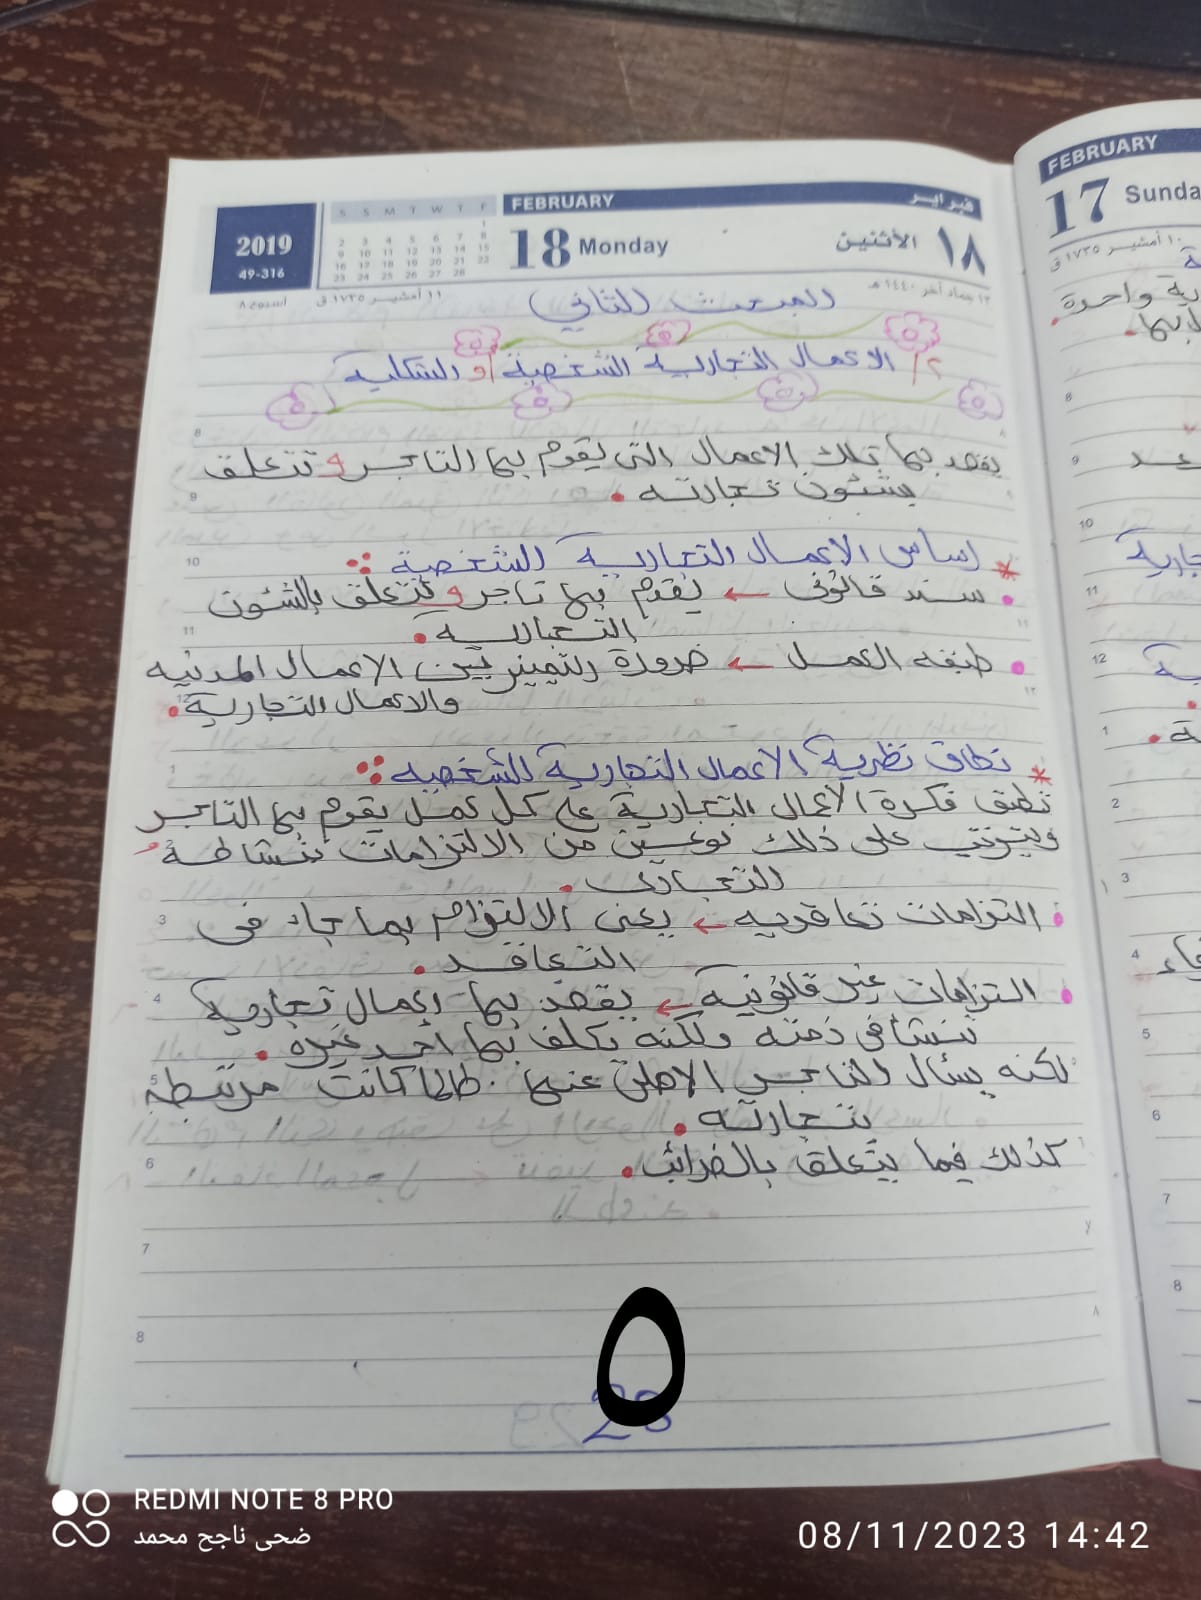 FEBRUARY
فبراير
2019
49-316
S S M T W T F
1
2 3 4 5 6 7 8
9 10 11 12 13 14 15
16 17 18 19 20 21 22
23 24 25 26 27 28
18 Monday
الأثنين ١٨
١٣ جماد آخر ١٤٤٠ هـ
١١ أمشير ١٧٣٥ ق
أسبوع ٨
المبحث الثاني
٢/ الاعمال التجارية الشخصية او الشكلية
يقصد بها تلك الاعمال التى يقوم بها التاجر و تتعلق
بشئون تجارته .
* اساس الاعمال التجارية الشخصية :
• سند قانونى ← يقوم بها تاجر و تتعلق بالشئون
التجارية .
• طبقه العمل ← ضرورة التمييز بين الاعمال المدنيه
والاعمال التجارية .
* نطاق نظرية الاعمال التجارية الشخصيه :
تطبق فكرة الأعمال التجارية على كل عمل يقوم بها التاجر
ويترتب على ذلك نوعين من الالتزامات بنشاطة
التجارى .
• التزامات تعاقديه ← يعنى الالتزام بما جاء فى
التعاقد .
• التزامات غير قانونية ← يقصد بها اعمال تجارية
تنشأ فى ذمته ولكنه يكلف بها أحد غيره .
لكنه يسأل التاجر الاصلى عنها طالما كانت مرتبطه
بتجارته .
كذلك فيما يتعلق بالضرائب .
٥
FEBRUARY
17 Sunda
١٠ أمشير ١٧٣٥ ق
واحدة
REDMI NOTE 8 PRO
ضحى ناجح محمد
08/11/2023 14:42